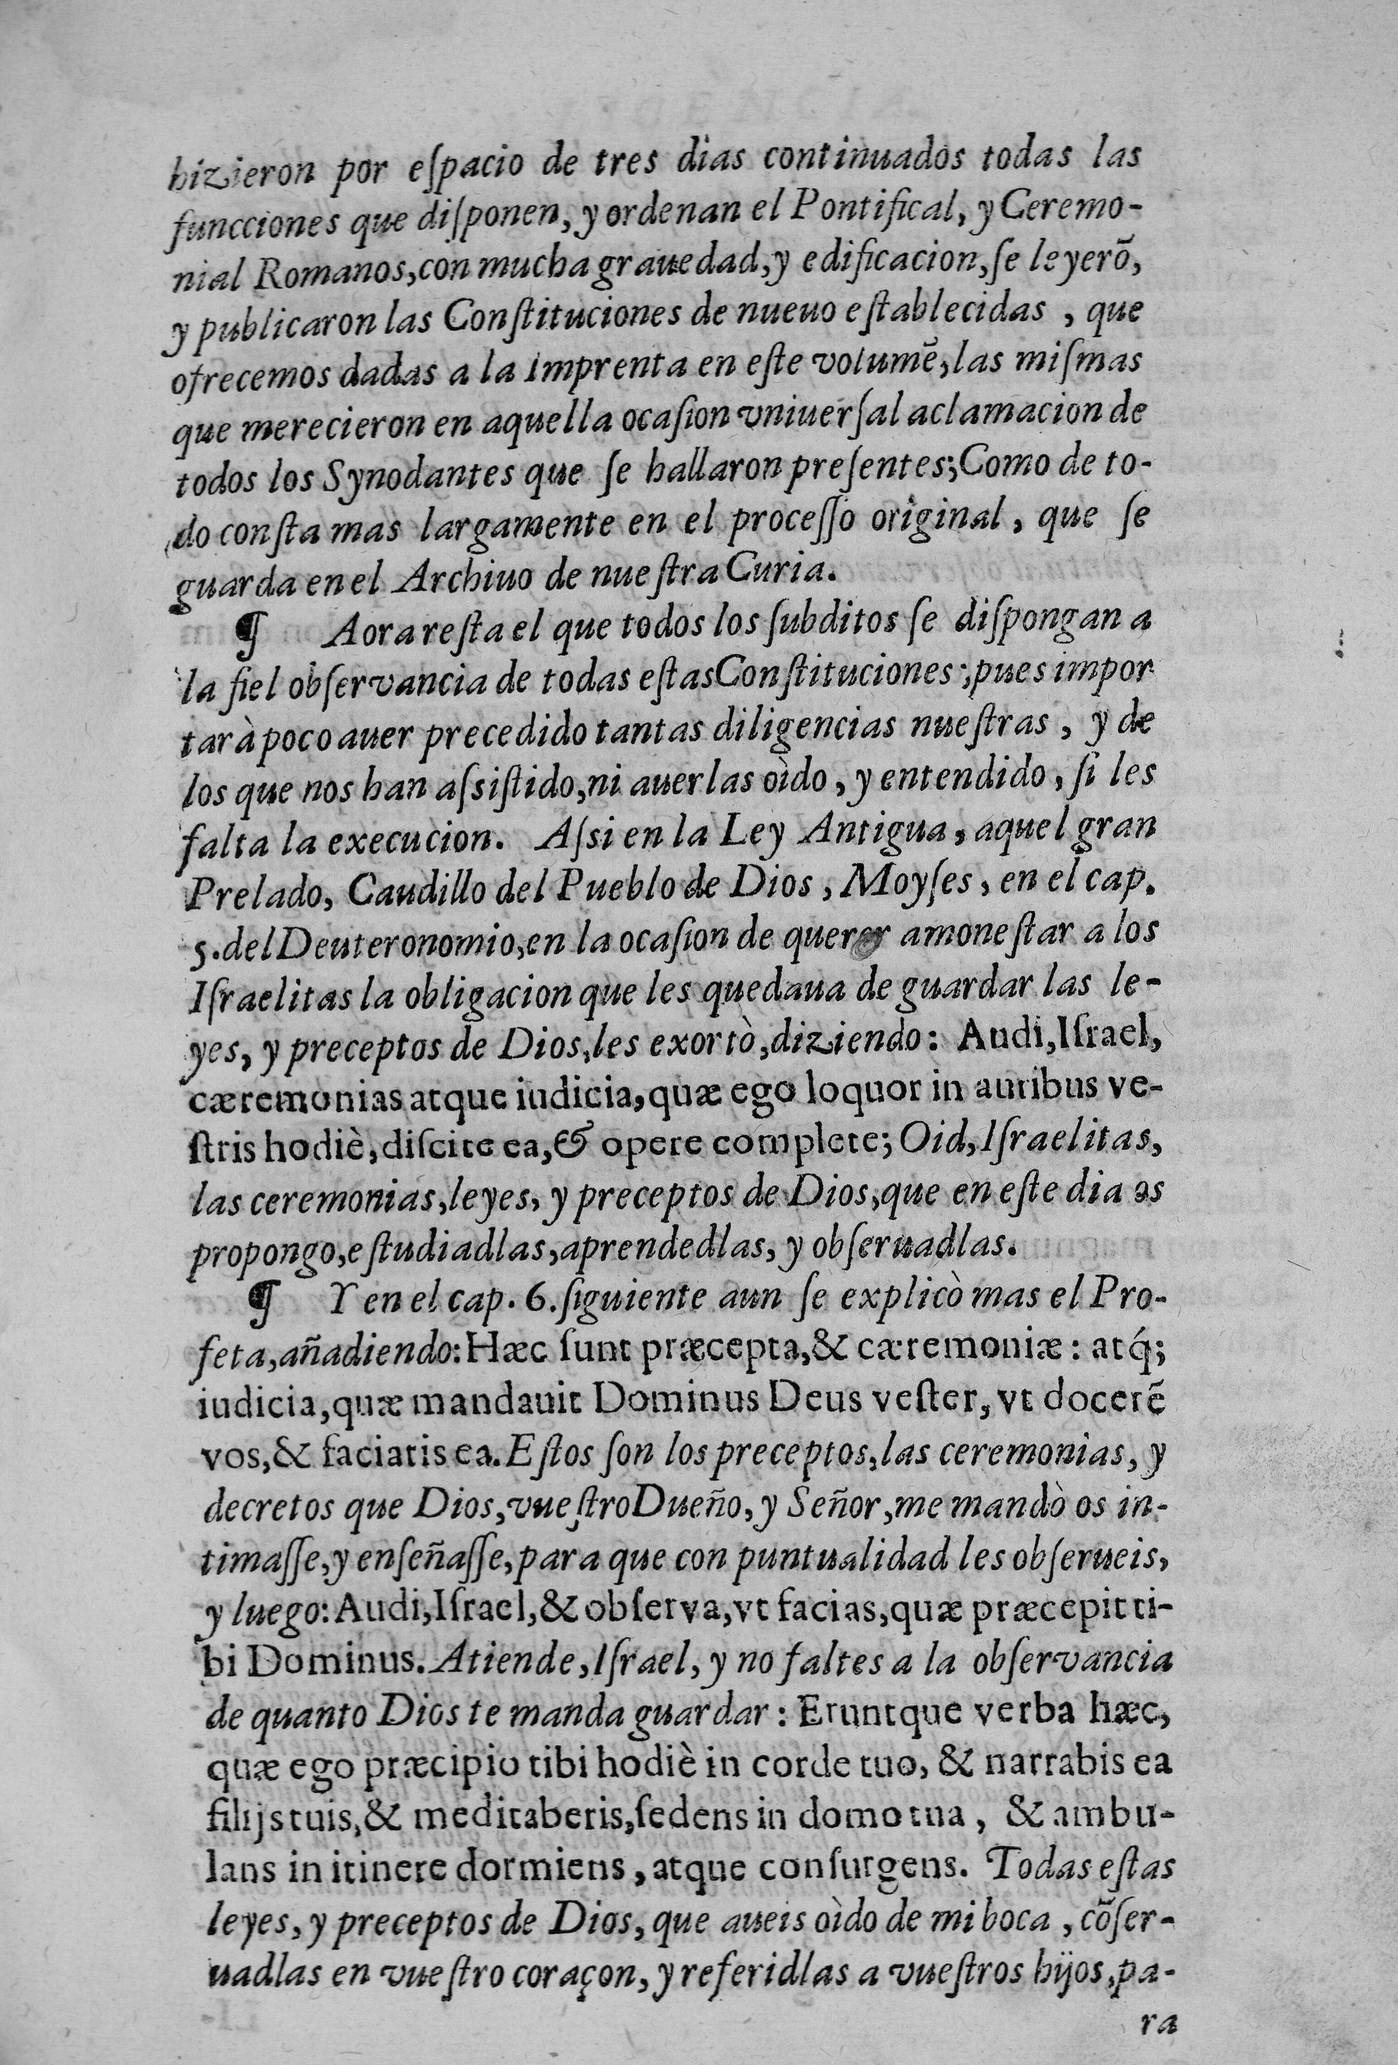 hizieron por eſpacio de tres dias continuados todas las
funcciones que diſponen, y ordenan el Pontifical, y Ceremo-
nial Romanos, con mucha grauedad, y edificacion, ſe leyerõ,
y publicaron las Conſtituciones de nueuo eſtablecidas, que
ofrecemos dadas a la Imprenta en eſte volumẽ, las miſmas
que merecieron en aquella ocaſion vniuerſal aclamacion de
todos los Synodantes que ſe hallaron preſentes; Como de to-
do conſta mas largamente en el proceſſo original, que ſe
guarda en el Archiuo de nueſtra Curia.
¶ Aora reſta el que todos los ſubditos ſe diſpongan a
la fiel obſervancia de todas eſtas Conſtituciones; pues impor
tarà poco auer precedido tantas diligencias nueſtras, y de
los que nos han aſsiſtido, ni auerlas oìdo, y entendido, ſi les
falta la execucion. Aſsi en la Ley Antigua, aquel gran
Prelado, Caudillo del Pueblo de Dios, Moyſes, en el cap.
5. del Deuteronomio, en la ocaſion de querer amoneſtar a los
Iſraelitas la obligacion que les quedaua de guardar las le-
yes, y preceptos de Dios, les exortò, diziendo: Audi, Iſrael,
cæremonias atque iudicia, quæ ego loquor in auribus ve-
ſtris hodiè, diſcite ea, & opere complete; Oid, Iſraelitas,
las ceremonias, leyes, y preceptos de Dios, que en eſte dia os
propongo, eſtudiadlas, aprendedlas, y obſeruadlas.
¶ Y en el cap. 6. ſiguiente aun ſe explicò mas el Pro-
feta, añadiendo: Hæc ſunt præcepta, & cæremoniæ: atq́;
iudicia, quæ mandauit Dominus Deus veſter, vt docerẽ
vos, & faciatis ea. Eſtos ſon los preceptos, las ceremonias, y
decretos que Dios, vueſtro Dueño, y Señor, me mandò os in-
timaſſe, y enſeñaſſe, para que con puntualidad les obſerueis,
y luego: Audi, Iſrael, & obſerva, vt facias, quæ præcepit ti-
bi Dominus. Atiende, Iſrael, y no faltes a la obſervancia
de quanto Dios te manda guardar: Eruntque verba hæc,
quæ ego præcipio tibi hodiè in corde tuo, & narrabis ea
filijs tuis, & meditaberis, ſedens in domo tua, & ambu-
lans in itinere dormiens, atque conſurgens. Todas eſtas
leyes, y preceptos de Dios, que aueis oìdo de mi boca, cõſer-
uadlas en vueſtro coraçon, y referidlas a vueſtros hijos, pa-
ra